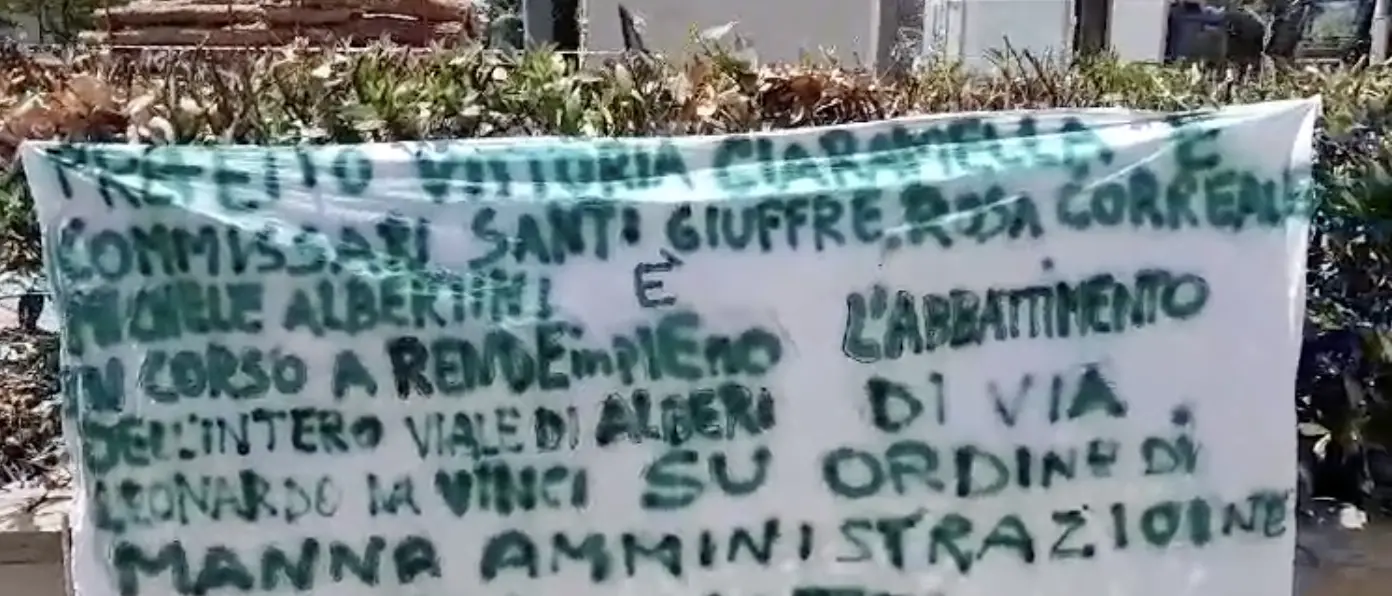 PREFETTO VITTORIA CIARAMELLA E
COMMISSARI SANTI GIUFFRE, ROSA CORREALE
MICHELE ALBERTINI È
IN CORSO A RENDEmPIEnO L'ABBATTIMENTO
DELL'INTERO VIALE DI ALBERI DI VIA
LEONARDO DA VINCI SU ORDINE DI
MANNA AMMINISTRAZIOINE